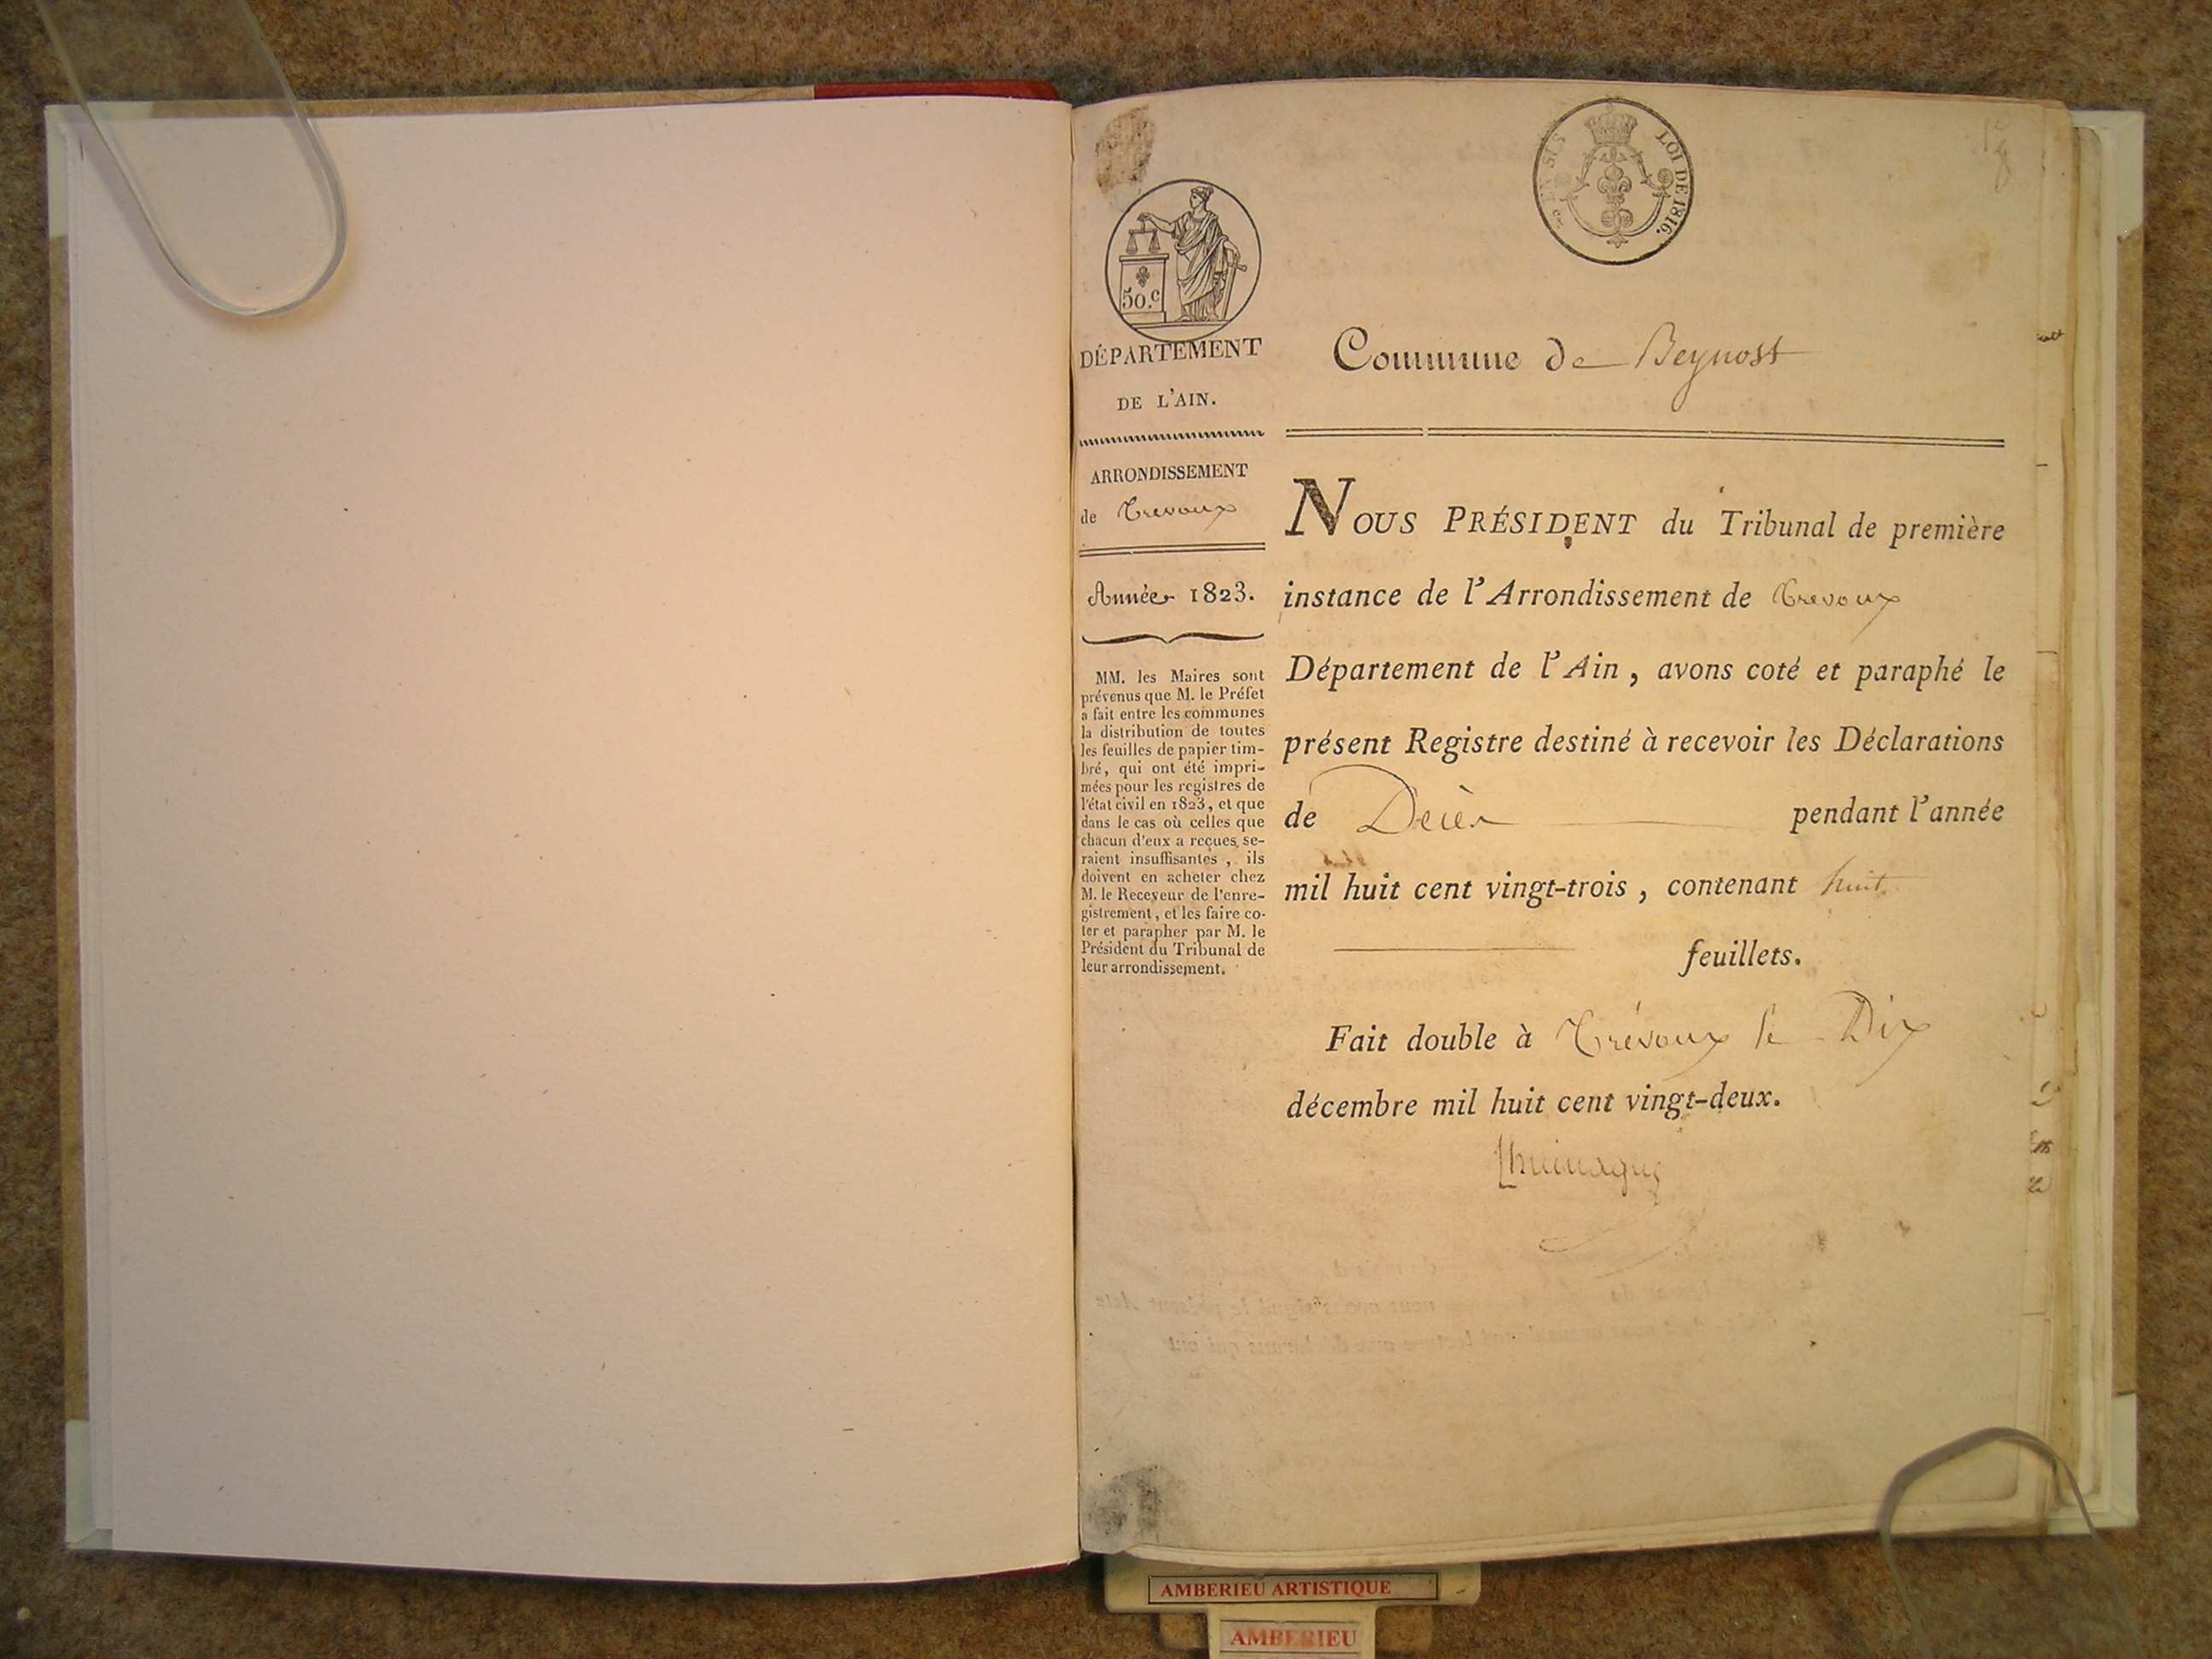 LOI DE 1816.
50.c
DÉPARTEMENT
DE L'AIN.
ARRONDISSEMENT
de Trevoux
Année 1823.
MM. les Maires sont
prévenus que M. le Préfet
a fait entre les communes
la distribution de toutes
les feuilles de papier tim-
bré, qui ont été impri-
mées pour les registres de
l'état civil en 1823, et que
dans le cas où celles que
chacun d'eux a reçues, se-
raient insuffisantes, ils
doivent en acheter chez
M. le Receveur de l'enre-
gistrement, et les faire co-
ter et parapher par M. le
Président du Tribunal de
leur arrondissement.
Commune de Beynost
NOUS PRÉSIDENT du Tribunal de première
instance de l'Arrondissement de Trevoux
Département de l'Ain, avons coté et paraphé le
présent Registre destiné à recevoir les Déclarations
de Décès pendant l'année
mil huit cent vingt-trois, contenant huit
feuillets.
Fait double à Trévoux le Dix
décembre mil huit cent vingt-deux.
AMBERIEU ARTISTIQUE
AMBERIEU